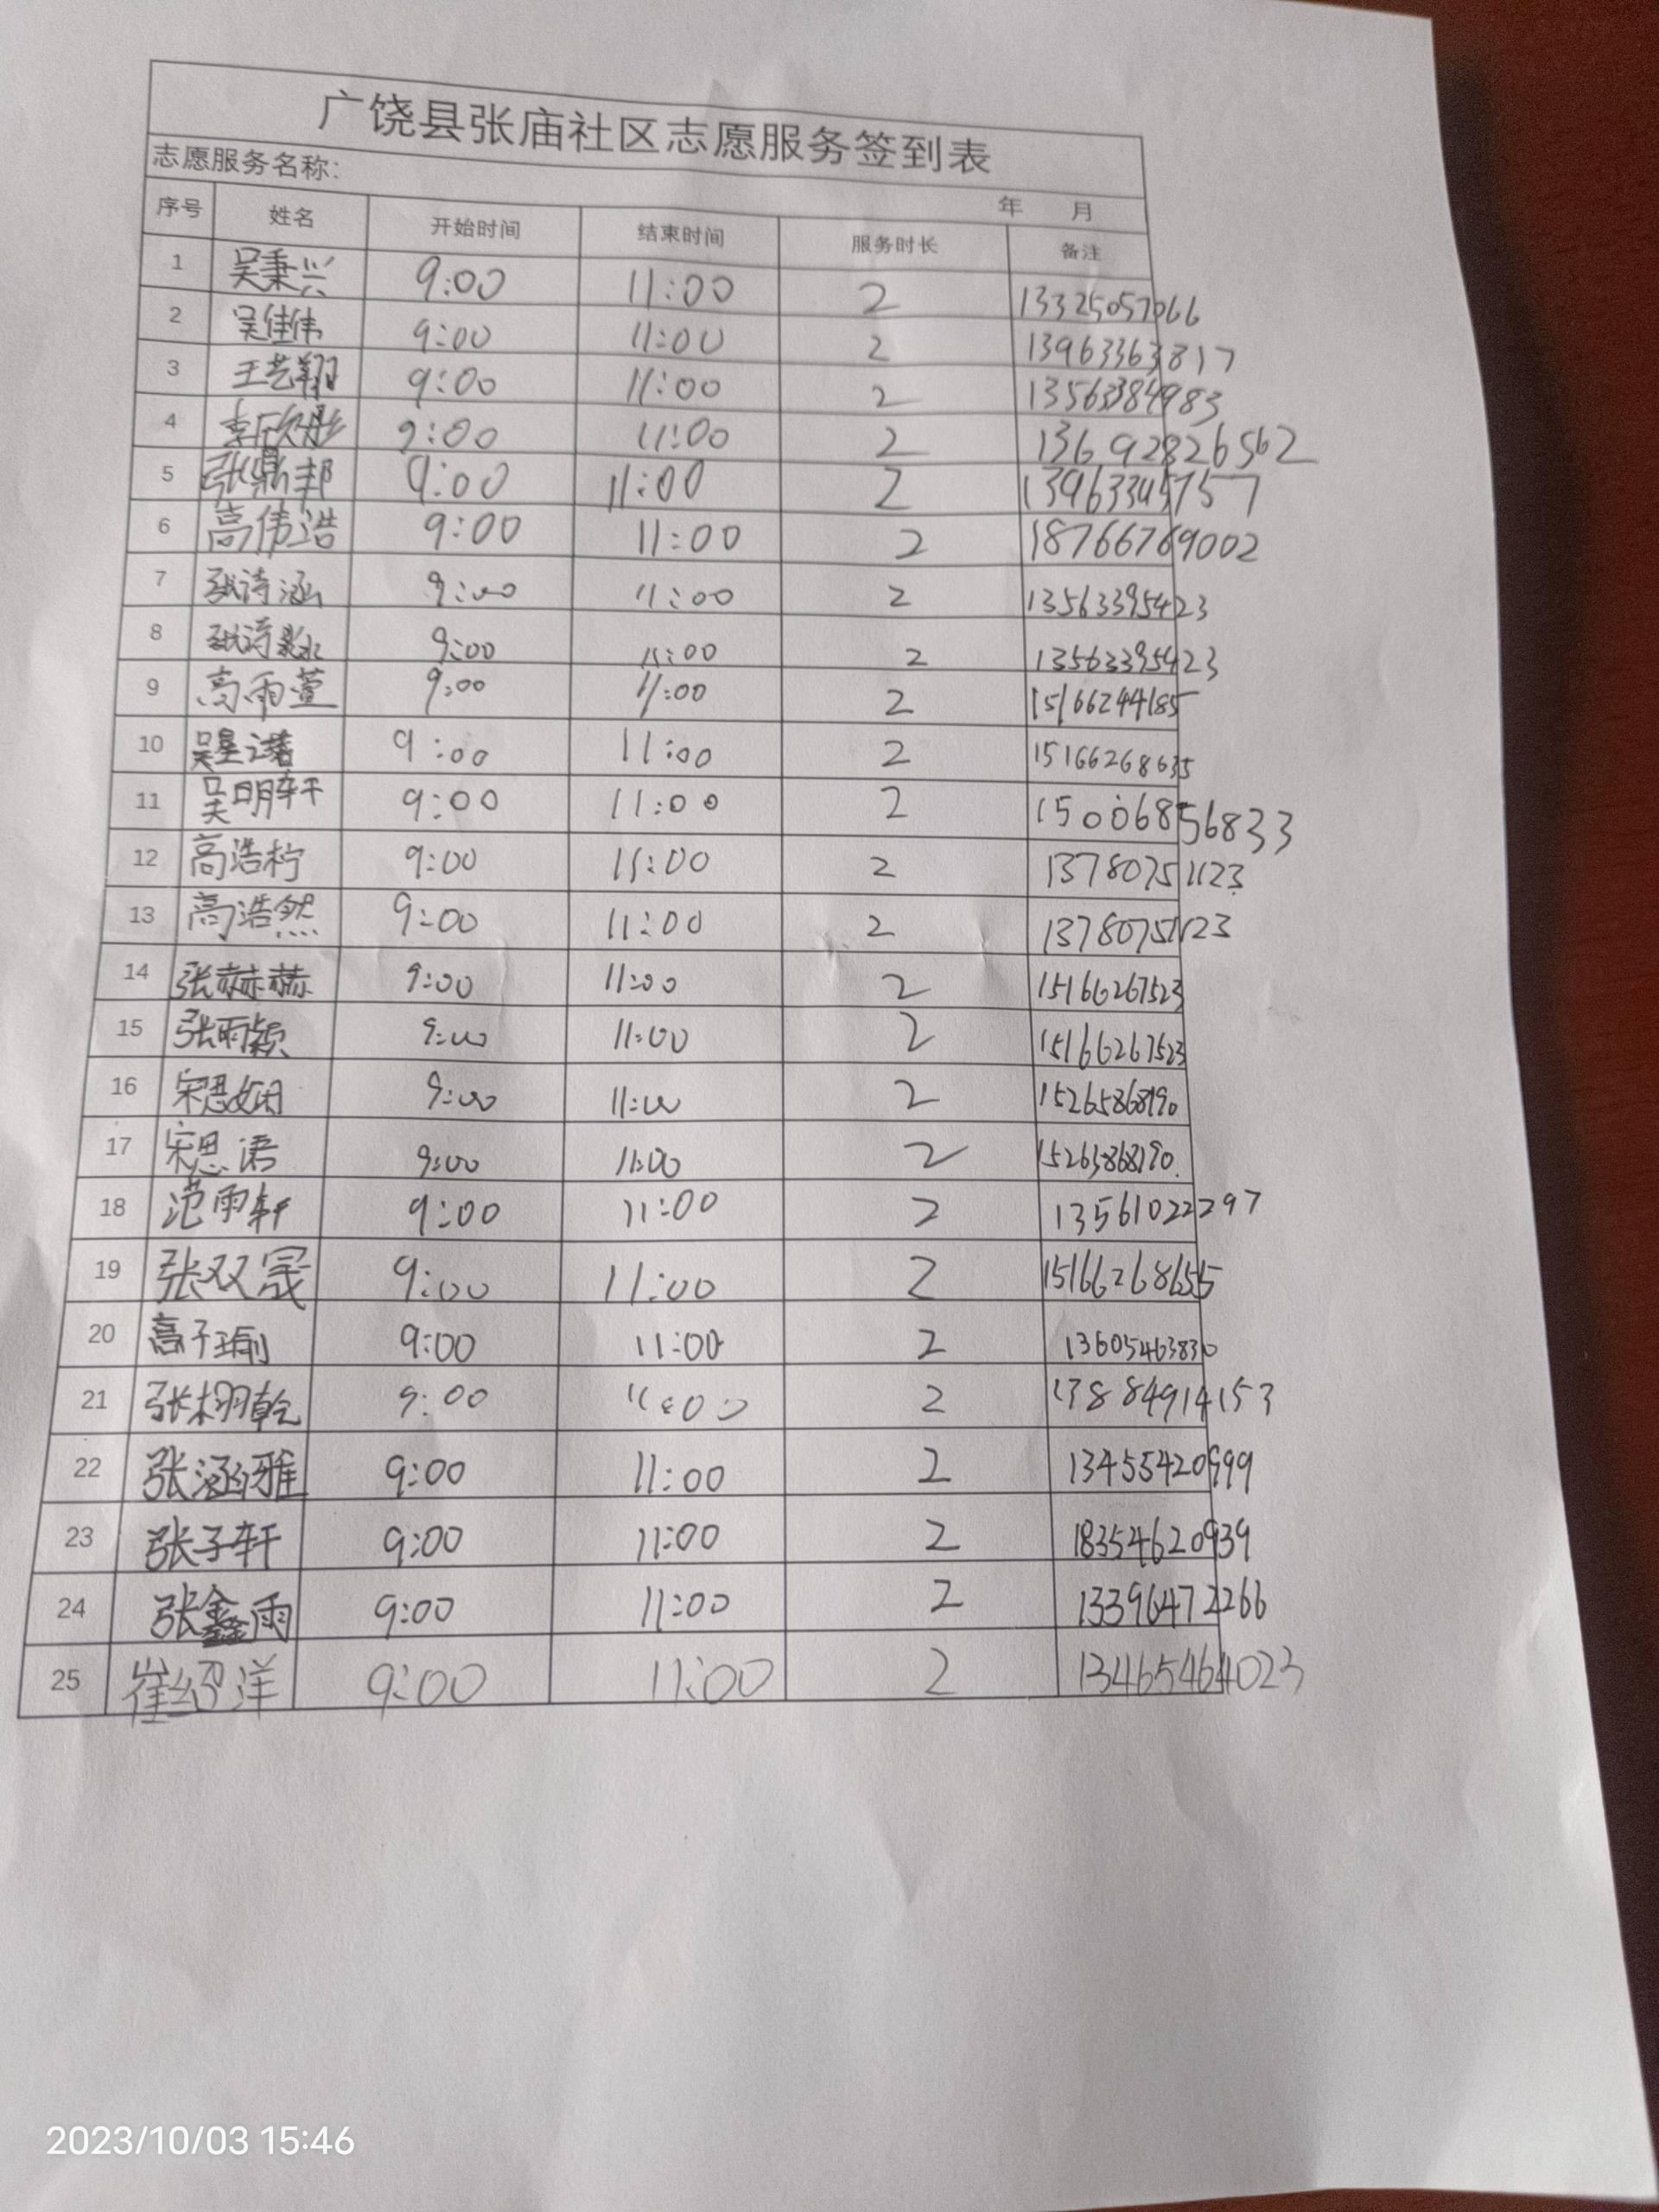 广饶县张庙社区志愿服务签到表
志愿服务名称:
年 月
序号 姓名 开始时间 结束时间 服务时长 备注
1 吴秉兴 9:00 11:00 2 13325057066
2 吴佳伟 9:00 11:00 2 13963363817
3 王艺翔 9:00 11:00 2 13563384983
4 李欣彤 9:00 11:00 2 13692826562
5 张鼎邦 9:00 11:00 2 13963345757
6 高伟浩 9:00 11:00 2 18766769002
7 张诗涵 9:00 11:00 2 13563395423
8 张诗 9:00 11:00 2 13563395423
9 高雨萱 9:00 11:00 2 15166244185
10 吴星诺 9:00 11:00 2 15166268635
11 吴明轩 9:00 11:00 2 15006856833
12 高浩柠 9:00 11:00 2 13780751123
13 高浩然 9:00 11:00 2 13780751123
14 张赫赫 9:00 11:00 2 15166267523
15 张雨颖 9:00 11:00 2 15166267523
16 宋思娴 9:00 11:00 2 15265868190
17 宋思语 9:00 11:00 2 15265868190.
18 范雨轩 9:00 11:00 2 13561022297
19 张双晟 9:00 11:00 2 15166268655
20 高子瑜 9:00 11:00 2 13605463830
21 张栩乾 9:00 11:00 2 13884914153
22 张涵雅 9:00 11:00 2 13455420999
23 张子轩 9:00 11:00 2 18354620939
24 张鑫雨 9:00 11:00 2 13396472266
25 崔绍洋 9:00 11:00 2 13465464023
2023/10/03 15:46